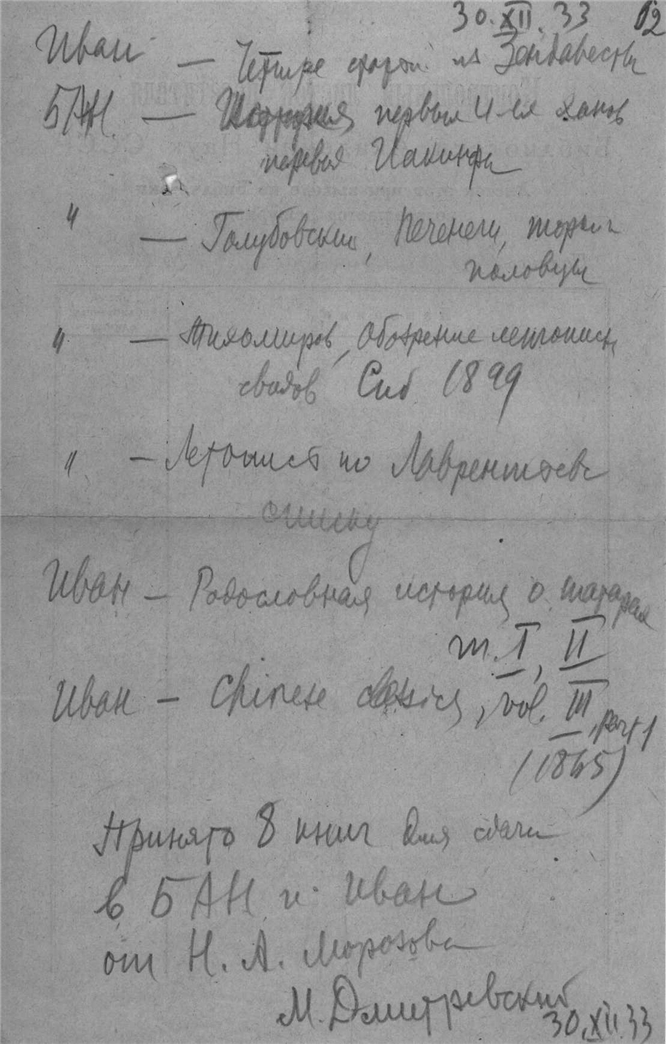 30.XII.33 12
Иван — Четыре статьи из Зендавесты
БАН — История первых 4-ех ханов
перевод Иакинфа
" — Голубовский, Печенеги, торки и
половцы
" — Тихомиров, Обозрение летописн.
сводов Спб 1899
" — Летопись по Лаврентьевс.
списку
Иван — Родословная история о татарах
т. I, II
Иван — Chinese classics, vol. III, part 1
(1865)
Принято 8 книг для сдачи
в БАН и Иван
от Н. А. Морозова
М. Дмитревский
30.XII.33